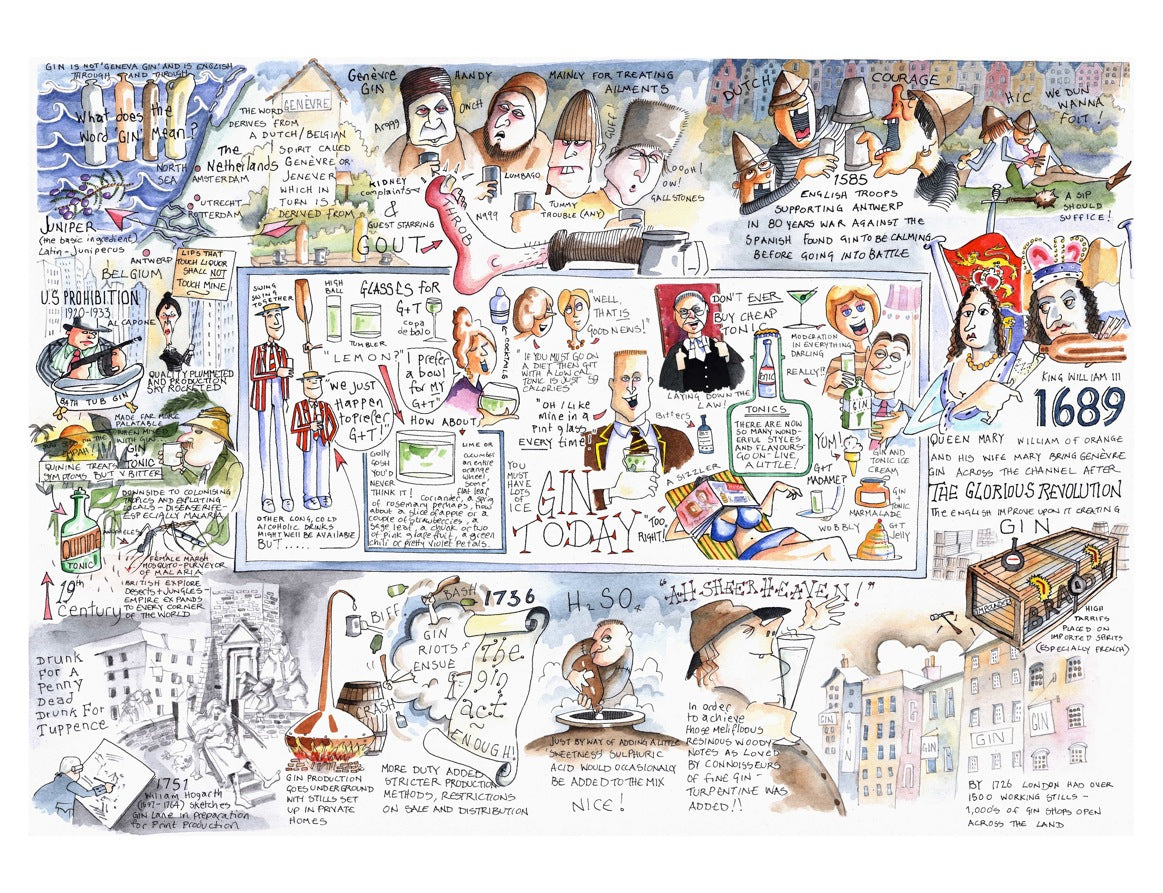 GIN IS NOT 'GENEVA GIN' AND IS ENGLISH
THROUGH AND THROUGH
What does the
Word 'GIN' Mean?
NORTH
SEA
The
Netherlands
AMSTERDAM
UTRECHT
ROTTERDAM
JUNIPER
(the basic ingredient)
Latin - Juniperus
ANTWERP
BELGIUM
THE WORD
GENÈVRE
DERIVES FROM
A DUTCH/BELGIAN
SPIRIT CALLED
GENÈVRE OR
JENEVER
WHICH IN
TURN IS
DERIVED FROM
Genèvre
GIN
HANDY
MAINLY FOR TREATING
AILMENTS
Ar999
OWCH
GUFF
OOOH!
OW!
GALLSTONES
LUMBAGO
KIDNEY
complaints
N999
TUMMY
TROUBLE (ANY)
&
GUEST STARRING
GOUT
THROB
DUTCH
COURAGE
HIC
WE DUN
WANNA
FOIT!
1585
ENGLISH TROOPS
SUPPORTING ANTWERP
IN 80 YEARS WAR AGAINST THE
SPANISH FOUND GIN TO BE CALMING
BEFORE GOING INTO BATTLE
A SIP
SHOULD
SUFFICE!
KING WILLIAM III
1689
QUEEN MARY WILLIAM OF ORANGE
AND HIS WIFE MARY BRING GENÈVRE
GIN ACROSS THE CHANNEL AFTER
THE GLORIOUS REVOLUTION
THE ENGLISH IMPROVE UPON IT CREATING
GIN
IMPOUNDED
BRANDY
HIGH
TARRIFS
PLACED ON
IMPORTED SPIRITS
(ESPECIALLY FRENCH)
LIPS THAT
TOUCH LIQUOR
SHALL NOT
TOUCH MINE
U.S PROHIBITION
1920-1933
AL CAPONE
BATH TUB GIN
QUALITY PLUMMETED
AND PRODUCTION
SKY ROCKETED
MADE FAR MORE
PALATABLE
WHEN MIXED
WITH GIN
GIN
&
TONIC
QUININE TREATS
SYMPTOMS BUT V BITTER
DOWNSIDE TO COLONISING
TROPICS AND EXPLOITING
LOCALS - DISEASE RIFE -
ESPECIALLY MALARIA
QUININE
TONIC
FEMALE MARSH
MOSQUITO - PURVEYOR
OF MALARIA
19th
Century
BRITISH EXPLORE
DESERTS + JUNGLES -
EMPIRE EXPANDS
TO EVERY CORNER
OF THE WORLD
SWING
SWING
TOGETHER
HIGH
BALL
GLASSES FOR
G+T
TUMBLER
copa
de balo
COCKTAILS
"LEMON?"
"We just
Happen
to prefer
G+T!"
I prefer
a bowl
for MY
G+T"
HOW ABOUT
Golly
GOSH
YOU'D
NEVER
THINK IT!
LIME OR
cucumber
an entire
orange
wheel,
Some
flat leaf
Coriander, a sprig
of rosemary perhaps, how
about a slice of apple or a
couple of strawberries, a
sage leaf, a chunk or two
of pink grapefruit, a green
chili or pretty violet petals.
OTHER LONG, COLD
ALCOHOLIC DRINKS
MIGHT WELL BE AVAILABLE
BUT.....
"WELL,
THAT IS
GOOD NEWS!"
"IF YOU MUST GO ON
A DIET THEN G+T
WITH A LOW CAL
TONIC IS JUST 59
CALORIES"
"Oh I Like
mine in a
pint glass
EVERY time"
YOU
MUST
HAVE
LOTS
OF
ICE
GIN
TODAY
"TOO,
RIGHT!"
A SIZZLER
Bitters
DON'T EVER
BUY CHEAP
TONIC
LAYING DOWN THE
LAW!
TONIC
TONICS
THERE ARE NOW
SO MANY WOND-
ERFUL STYLES
AND FLAVOURS-
GO ON - LIVE
A LITTLE!
MODERATION
IN EVERYTHING
DARLING
REALLY!!
GIN
YUM!
GIN AND TONIC ICE
CREAM
G+T
MADAME?
GIN
TONIC
MARMALADE
WOBBLY
G+T
Jelly
DRUNK
FOR A
PENNY
DEAD
DRUNK FOR
TUPPENCE
1751
William Hogarth
(1697-1764) sketches
GIN Lane in Preparation
for Print Production
GIN PRODUCTION
GOES UNDERGROUND
WITH STILLS SET
UP IN PRIVATE
HOMES
BIFF
BASH
GIN
RIOTS
ENSUE
CRASH
1736
The
gin
act
ENOUGH!
MORE DUTY ADDED,
STRICTER PRODUCTION
METHODS, RESTRICTIONS
ON SALE AND DISTRIBUTION
H2SO4
JUST BY WAY OF ADDING A LITTLE
SWEETNESS SULPHURIC
ACID WOULD OCCASIONALLY
BE ADDED TO THE MIX
NICE!
"AH SHEER HEAVEN!"
In order
to achieve
those melifluous
RESINOUS WOODY
NOTES AS LOVED
BY CONNOISSEURS
OF FINE GIN -
TURPENTINE WAS
ADDED!!
GIN
GIN
GIN
GIN
GIN
GIN
BY 1726 LONDON HAD OVER
1500 WORKING STILLS -
1,000'S OF GIN SHOPS OPEN
ACROSS THE LAND